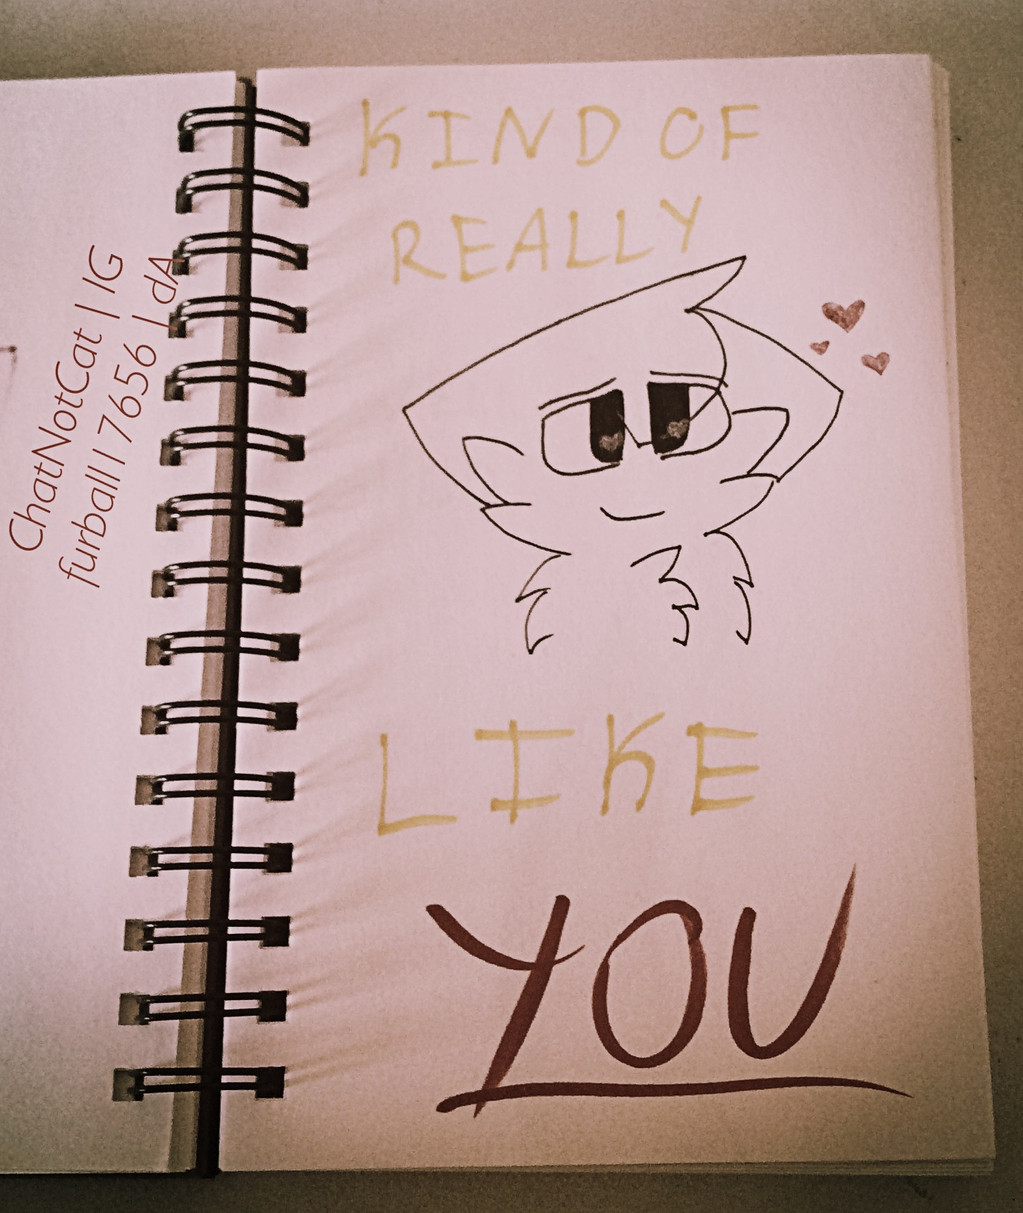 ChatNotCat | IG
furball17656 | dA
KIND OF
REALLY
LIKE
YOU